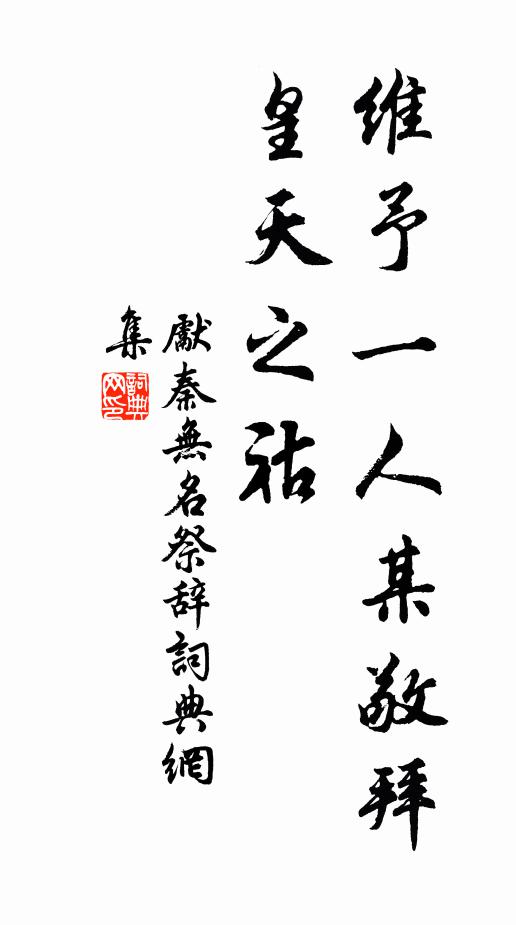 維予一人某敬拜
皇天之祜
獻秦無名祭辞詞典網
集
詞典
网印